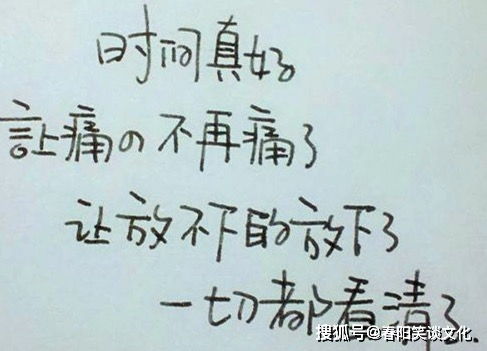 时间真好
讓痛の不再痛了
让放不下的放下了
一切都看清了.
搜狐号@春阳笑谈文化